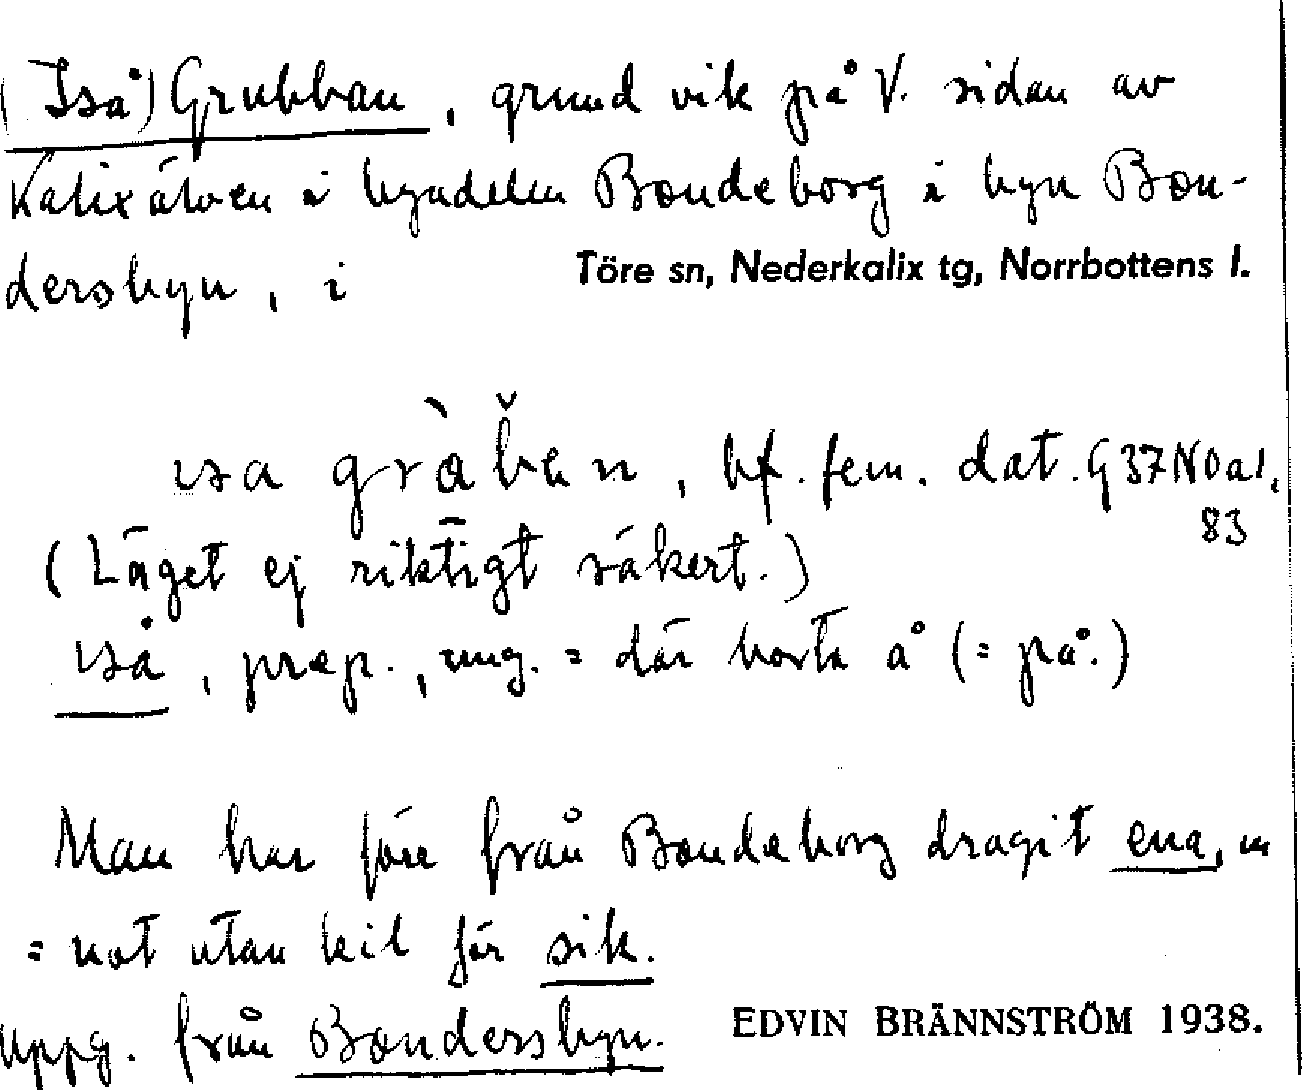 (Iså) Grubban, grund vik på V. sidan av
Kalixälven i byndelen Bondeborg i byn Bon-
dersbyn, i Töre sn, Nederkalix tg, Norrbottens l.
bf. fem. dat. G37N0a1.
83
(Läget ej riktigt säkert.)
iså, prep., ung. = där borta å (= på.)
Man har förr från Bondeborg dragit ena, m
= not utan kil för sik.
uppg. från Bondersbyn. EDVIN BRÄNNSTRÖM 1938.